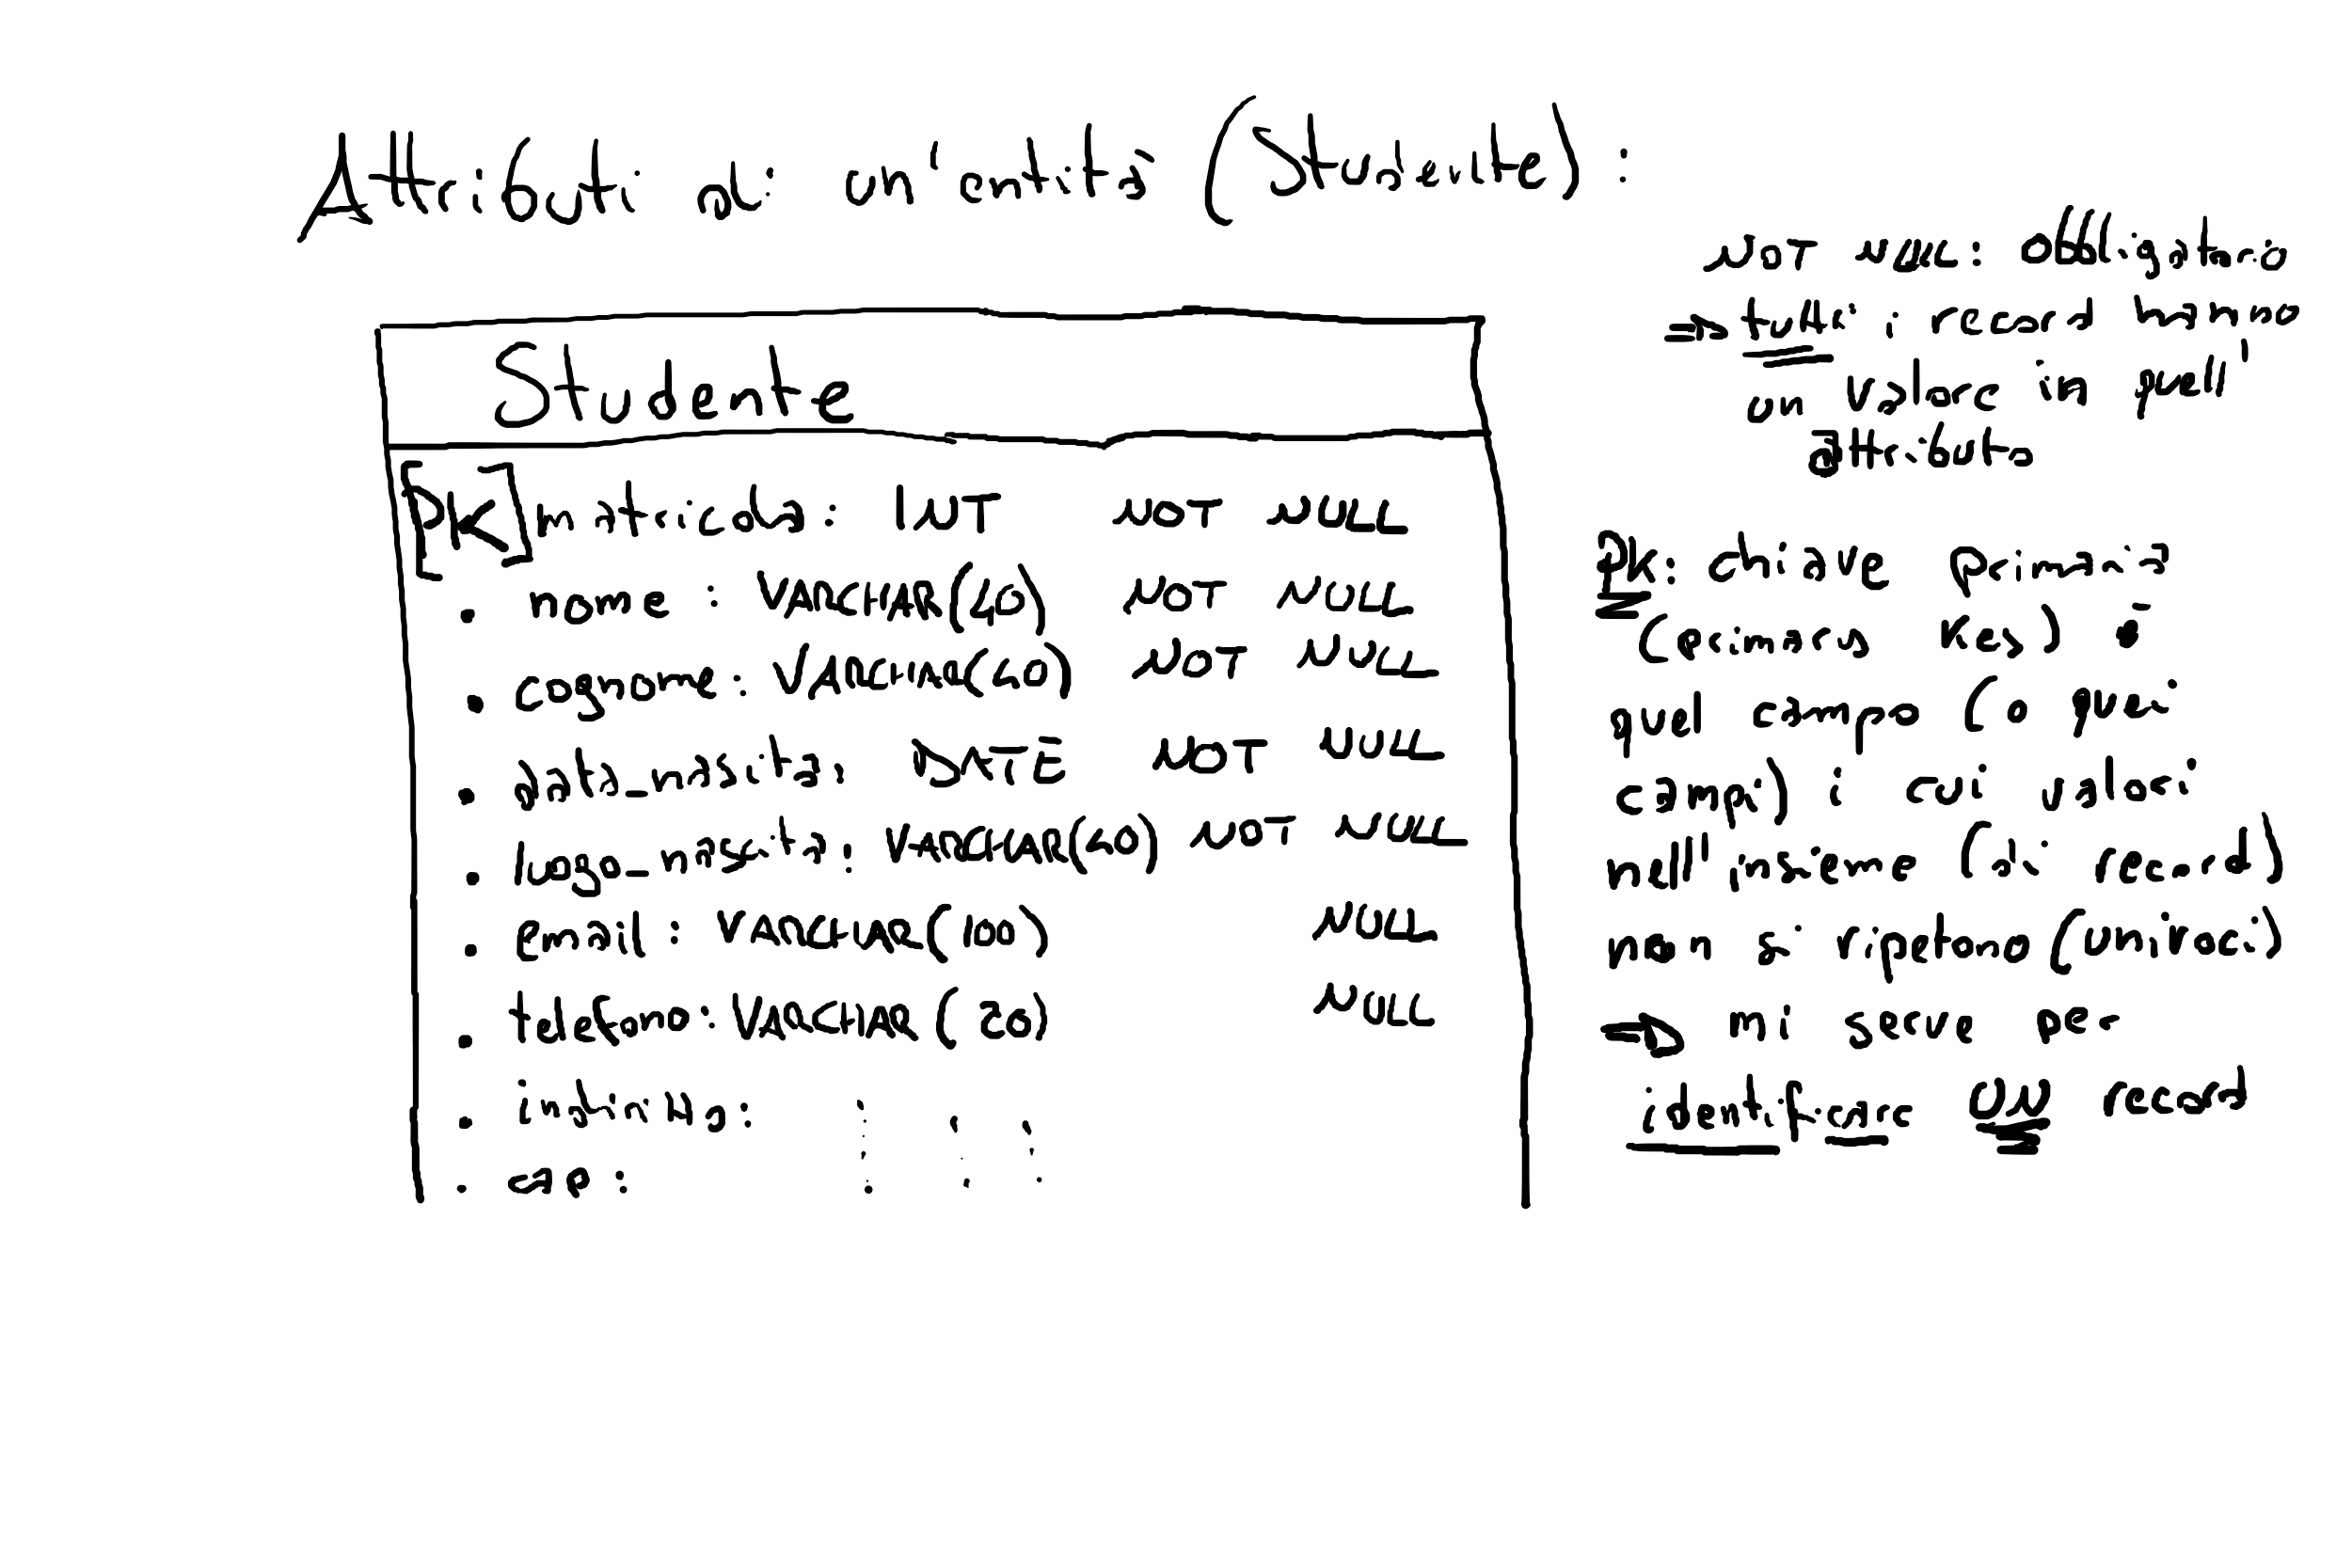 Attributi di un'entità (Studente):
Studente
[PK] matricola: INT NOT NULL
• nome: VARCHAR(40) NOT NULL
• cognome: VARCHAR(40) NOT NULL
• data_nascita: DATE NOT NULL
• luogo_nascita: VARCHAR(40) NOT NULL
• email: VARCHAR(100) NULL
• telefono: VARCHAR(20) NULL
• indirizzo:
• cap:
NOT NULL: obbligatorio
⇒ tutti i record hanno
un valore in quell'
attributo
PK: chiave primaria
(primary key) è
quel campo (o quei
campi) i cui valori
nell'insieme (di record)
non si ripetono (univoci)
⇒ mi serve per
identificare UN record